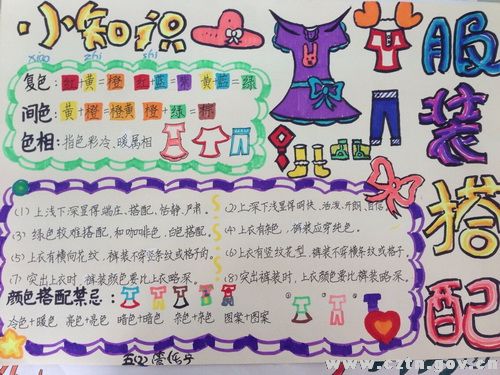 小知识
xiǎo zhī shi
服装搭配
复色：红+黄=橙 红+蓝=紫 黄+蓝=绿
间色：黄+橙=橙黄 橙+绿=棕
色相：指色彩冷、暖属相
(1) 上浅下深显得端庄、搭配、恬静、严肃。
(2) 上深下浅显得明快、活泼、开朗、自信。
(3) 绿色较难搭配，和咖啡色、白色搭配。
(4) 上衣有杂色，裤装应穿纯色。
(5) 上衣有横向花纹，裤装不穿竖条纹或格子的。
(6) 上衣有竖纹花型，裤装不穿横条纹或格子。
(7) 突出上衣时，裤装颜色要比上衣略深。
(8) 突出裤装时，上衣颜色要比裤装略深。
颜色搭配禁忌：
① ② ③
冷色+暖色 亮色+亮色 暗色+暗色 杂色+杂色 图案+图案
www.cztn.gov.cn